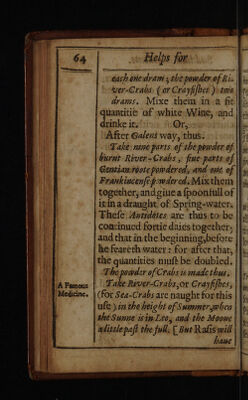 64
Helps for
each one dram; the powder of Ri-
ver-Crabs (or Crayfishes) two
drams. Mixe them in a fit
quantitie of white Wine, and
drinke it. Or,
After Galens way, thus.
Take nine parts of the powder of
burnt River-Crabs, five parts of
Gentian roote powdered, and one of
Frankincense powdered. Mix them
together, and give a spoonfull of
it in a draught of Spring-water.
These Antidotes are thus to be
continued fortie daies together;
and that in the beginning, before
he feareth water: for after that,
the quantities must be doubled.
The powder of Crabs is made thus.
A Famous
Medicine.
Take River-Crabs, or Crayfishes,
(for Sea-Crabs are naught for this
use) in the height of Summer, when
the Sunne is in Leo, and the Moone
a little past the full. [But Rasis will
have